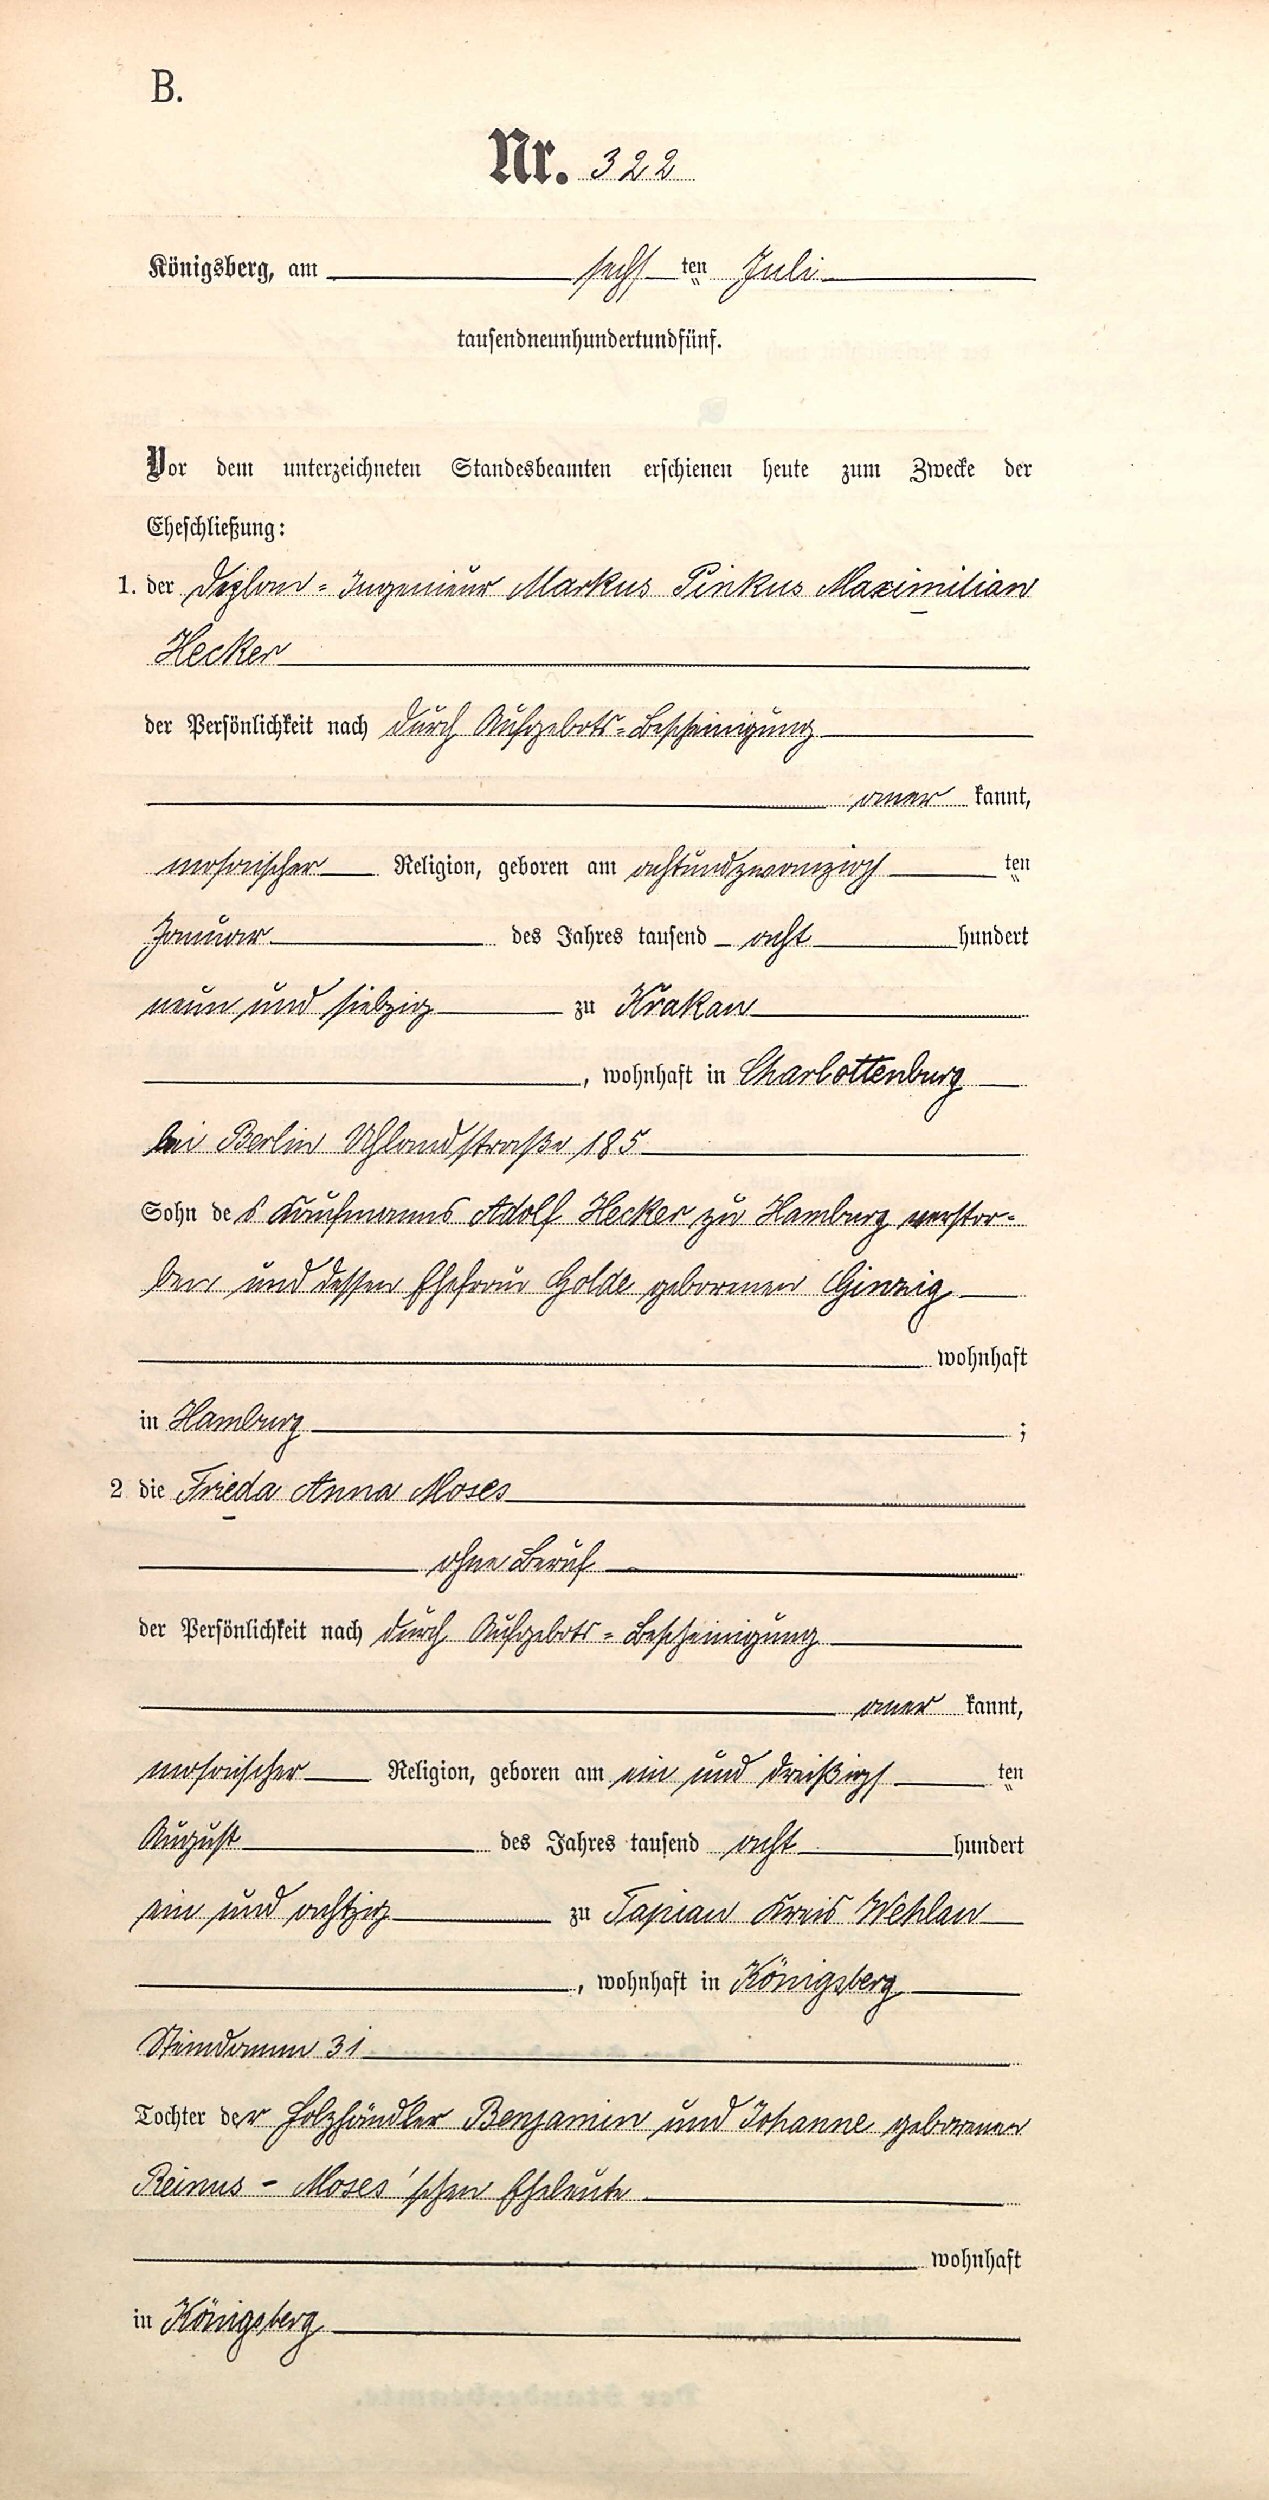 B.
Nr. 322
Königsberg, am sechs ten Juli
tausendneunhundertundfünf.
Vor dem unterzeichneten Standesbeamten erschienen heute zum Zwecke der
Eheschließung:
1. der Diplom-Ingenieur Markus Pinkus Maximilian
Hecker
der Persönlichkeit nach durch Aufgebots-Bescheinigung
aner kannt,
mosaischer Religion, geboren am achtundzwanzigs ten
Januar des Jahres tausend acht hundert
neun und siebzig zu Krakau
, wohnhaft in Charlottenburg
bei Berlin Uhlandstraße 185
Sohn des Kaufmanns Adolf Hecker zu Hamburg verstor-
ben und dessen Ehefrau Golde geborenen Ginzig
wohnhaft
in Hamburg ;
2 die Frieda Anna Moses
ohne Beruf
der Persönlichkeit nach durch Aufgebots-Bescheinigung
aner kannt,
mosaischer Religion, geboren am ein und dreißigs ten
August des Jahres tausend acht hundert
ein und achtzig zu Tapiau Kreis Wehlau
, wohnhaft in Königsberg
Steindamm 31
Tochter der Holzhändler Benjamin und Johanne geborenen
Reinus - Moses'schen Eheleute
wohnhaft
in Königsberg